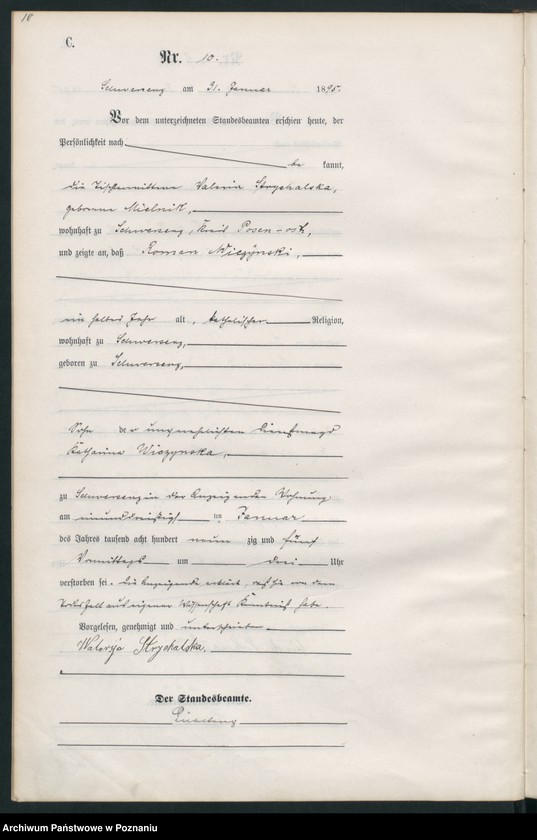 18
C.
Nr. 10.
Schwersenz am 31. Januar 1895.
Vor dem unterzeichneten Standesbeamten erschien heute, der
Persönlichkeit nach
be kannt,
die Valeria Strychalska,
geborene Mielnik,
wohnhaft zu Schwersenz, Kreis Posen-ost,
und zeigte an, daß Roman Wiczynski,
ein halbes Jahr alt, katholischer Religion,
wohnhaft zu Schwersenz,
geboren zu Schwersenz,
Sohn der unverehelichten Dienstmagd
Katharina Wiczynska,
zu Schwersenz in der Anzeigenden Wohnung
am einunddreißigsten Januar
des Jahres tausend acht hundert neun zig und fünf
Vormittags um drei Uhr
verstorben sei. Die Anzeigende erklärt, daß sie von dem
Todesfall aus eigener Wissenschaft Kenntniß habe.
Vorgelesen, genehmigt und unterschrieben
Waleryja Strychalska.
Der Standesbeamte.
Archiwum Państwowe w Poznaniu